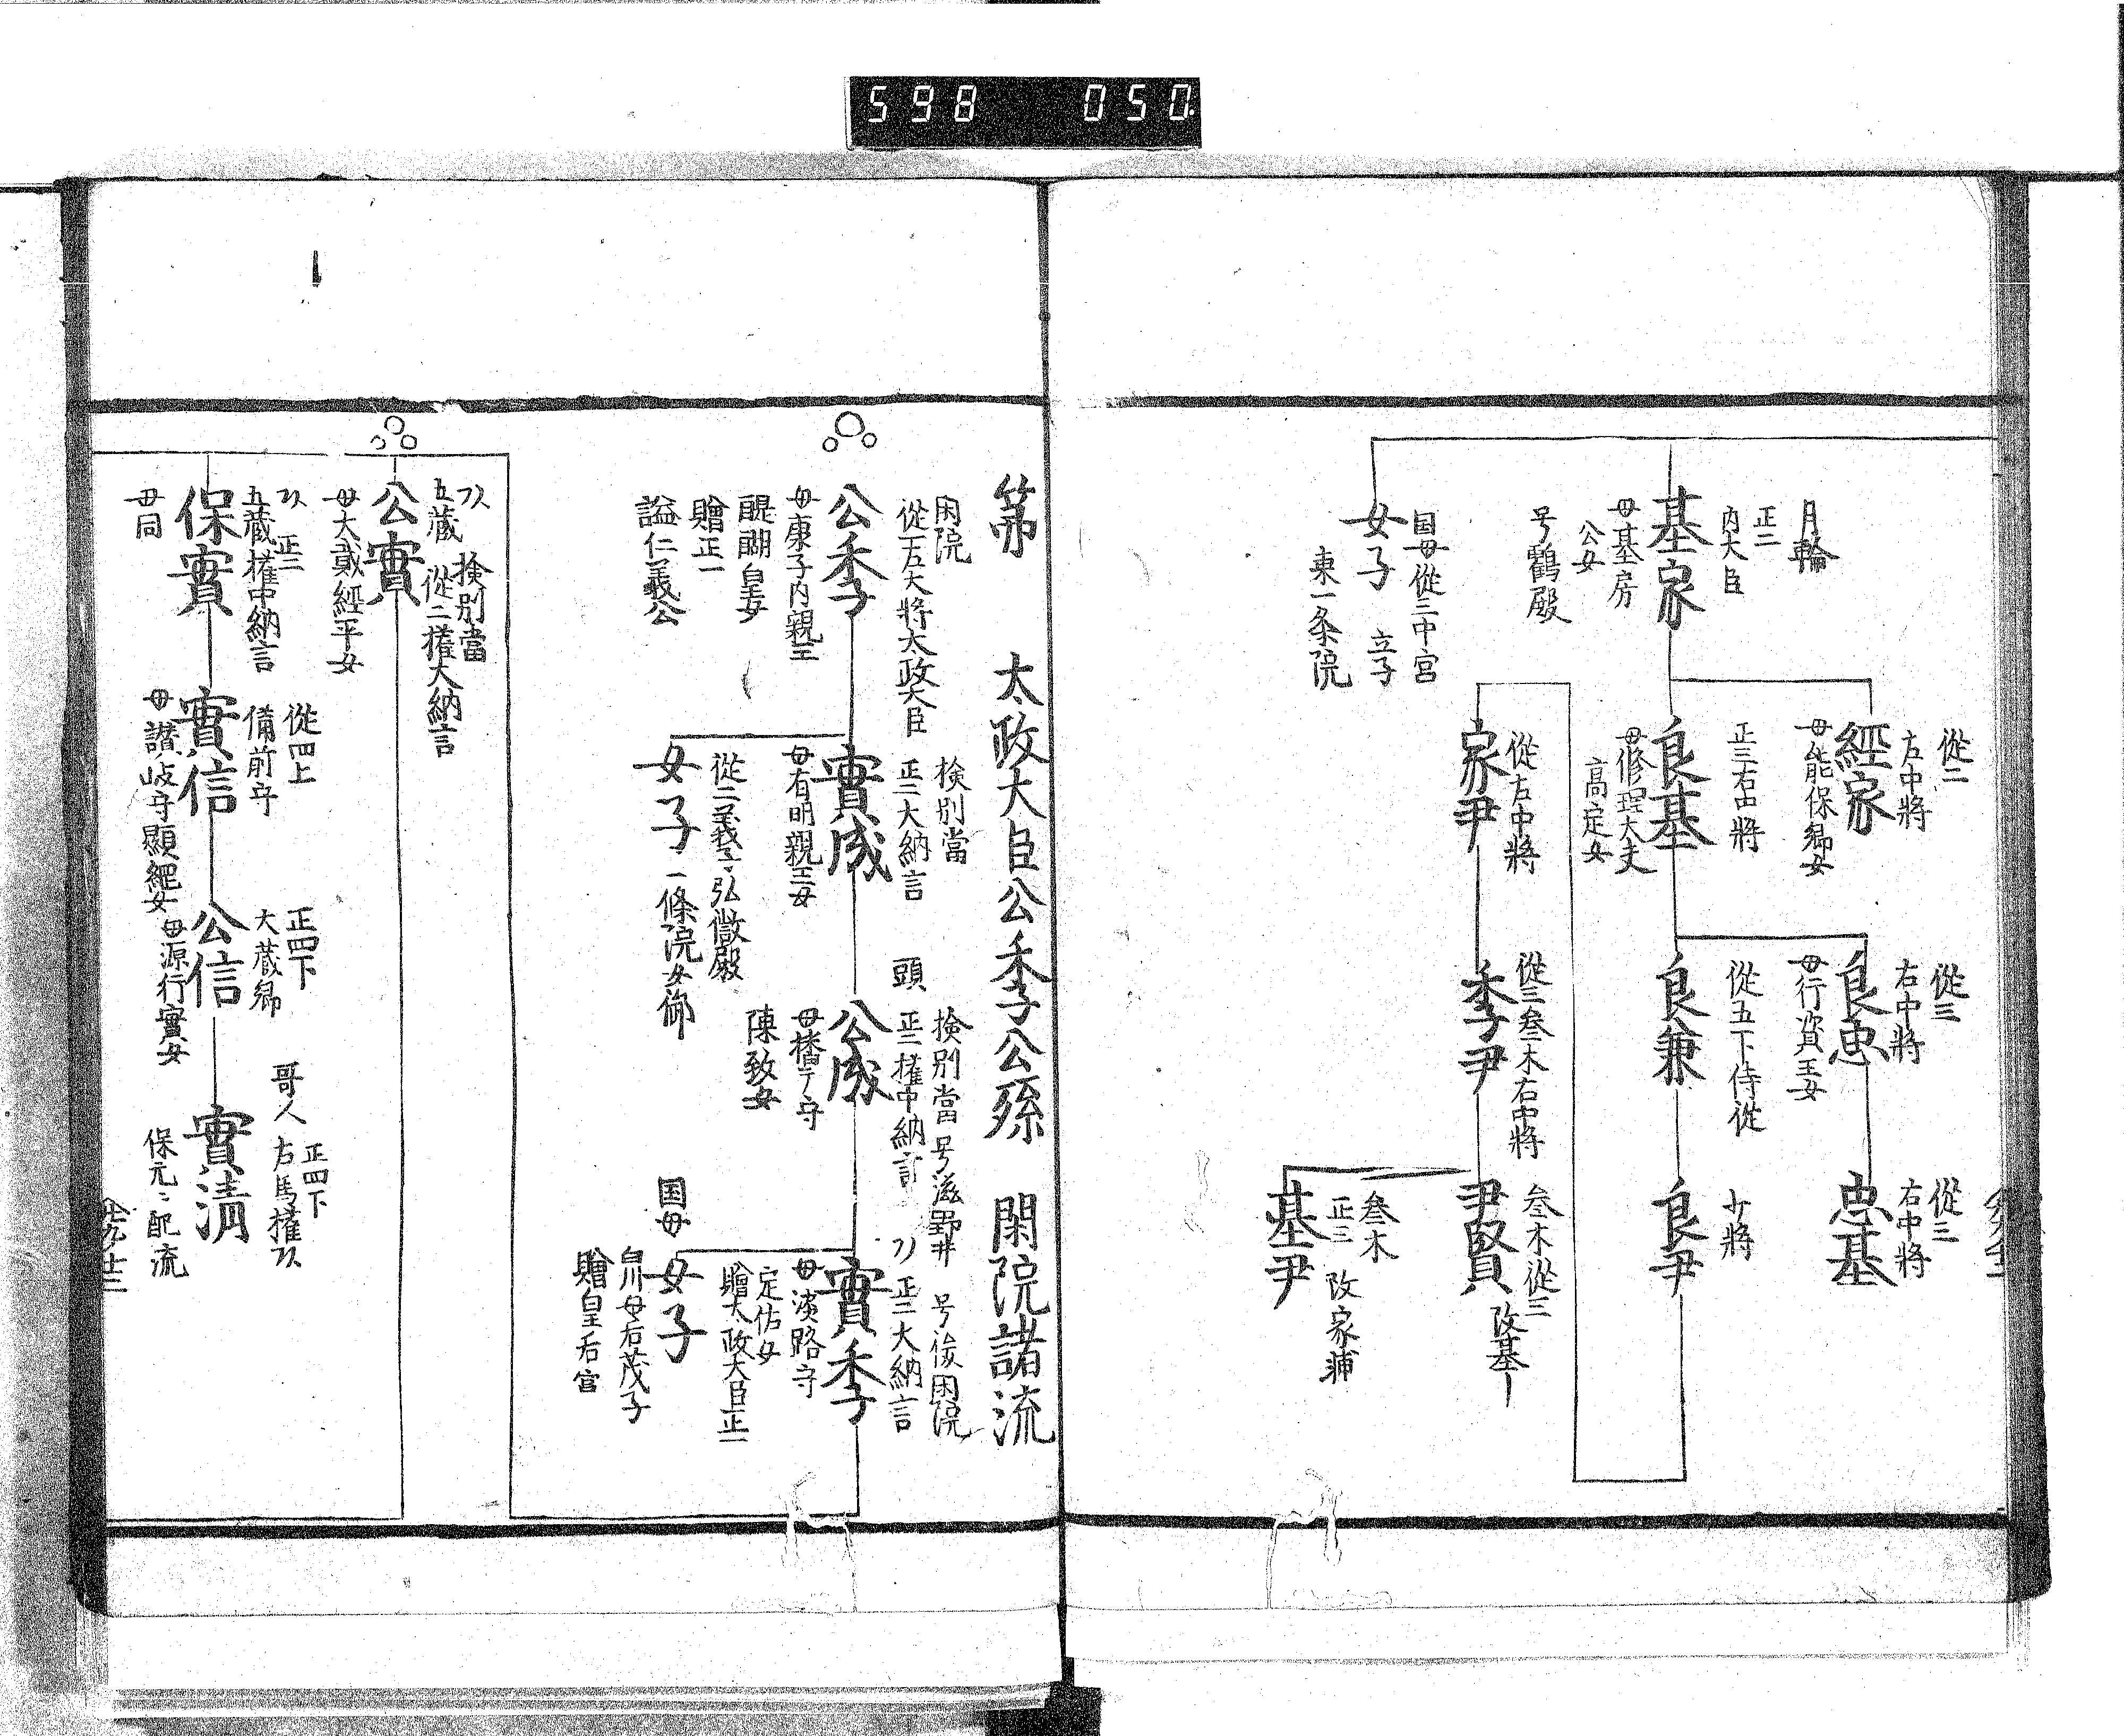 598 050
月輪
正二
内大臣
基家
母基房
公女
号鶴殿
国母從三中宮
女子 立子
東一条院
從二
左中將
經家
母能保卿女
正三右中將
良基
母修理大夫
高定女
從左中將
家尹
從三
右中將
良忠
母行資王女
從五下侍從
良兼
從三叅木右中將
季尹
從三
右中將
忠基
少將
良尹
叅木從三
尹賢
改基
叅木
正三
基尹
改家輔
第 太政大臣公季公孫 閑院諸流
閑院
從一左大將太政大臣
公季
母康子内親王
醍醐皇女
贈正一
謚仁義公
檢別當
正二大納言
實成
母有明親王女
從二義子弘徽殿
女子 一條院女御
頭
檢別當 号滋野井
正二權中納言
公成
母播广守
陳致女
号後閑院
正二大納言
實季
母淡路守
定佐女
贈太政大臣正一
国母
女子
白川母后茂子
贈皇后宮
檢別當
五藏 從二權大納言
公實
母大貳經平女
正二
五藏權中納言
保實
母同
從四上
備前守
實信
母讃岐守顯綱女
正四下
大藏卿
公信
母源行實女
哥人 正四下
右馬權
實清
保元〻配流